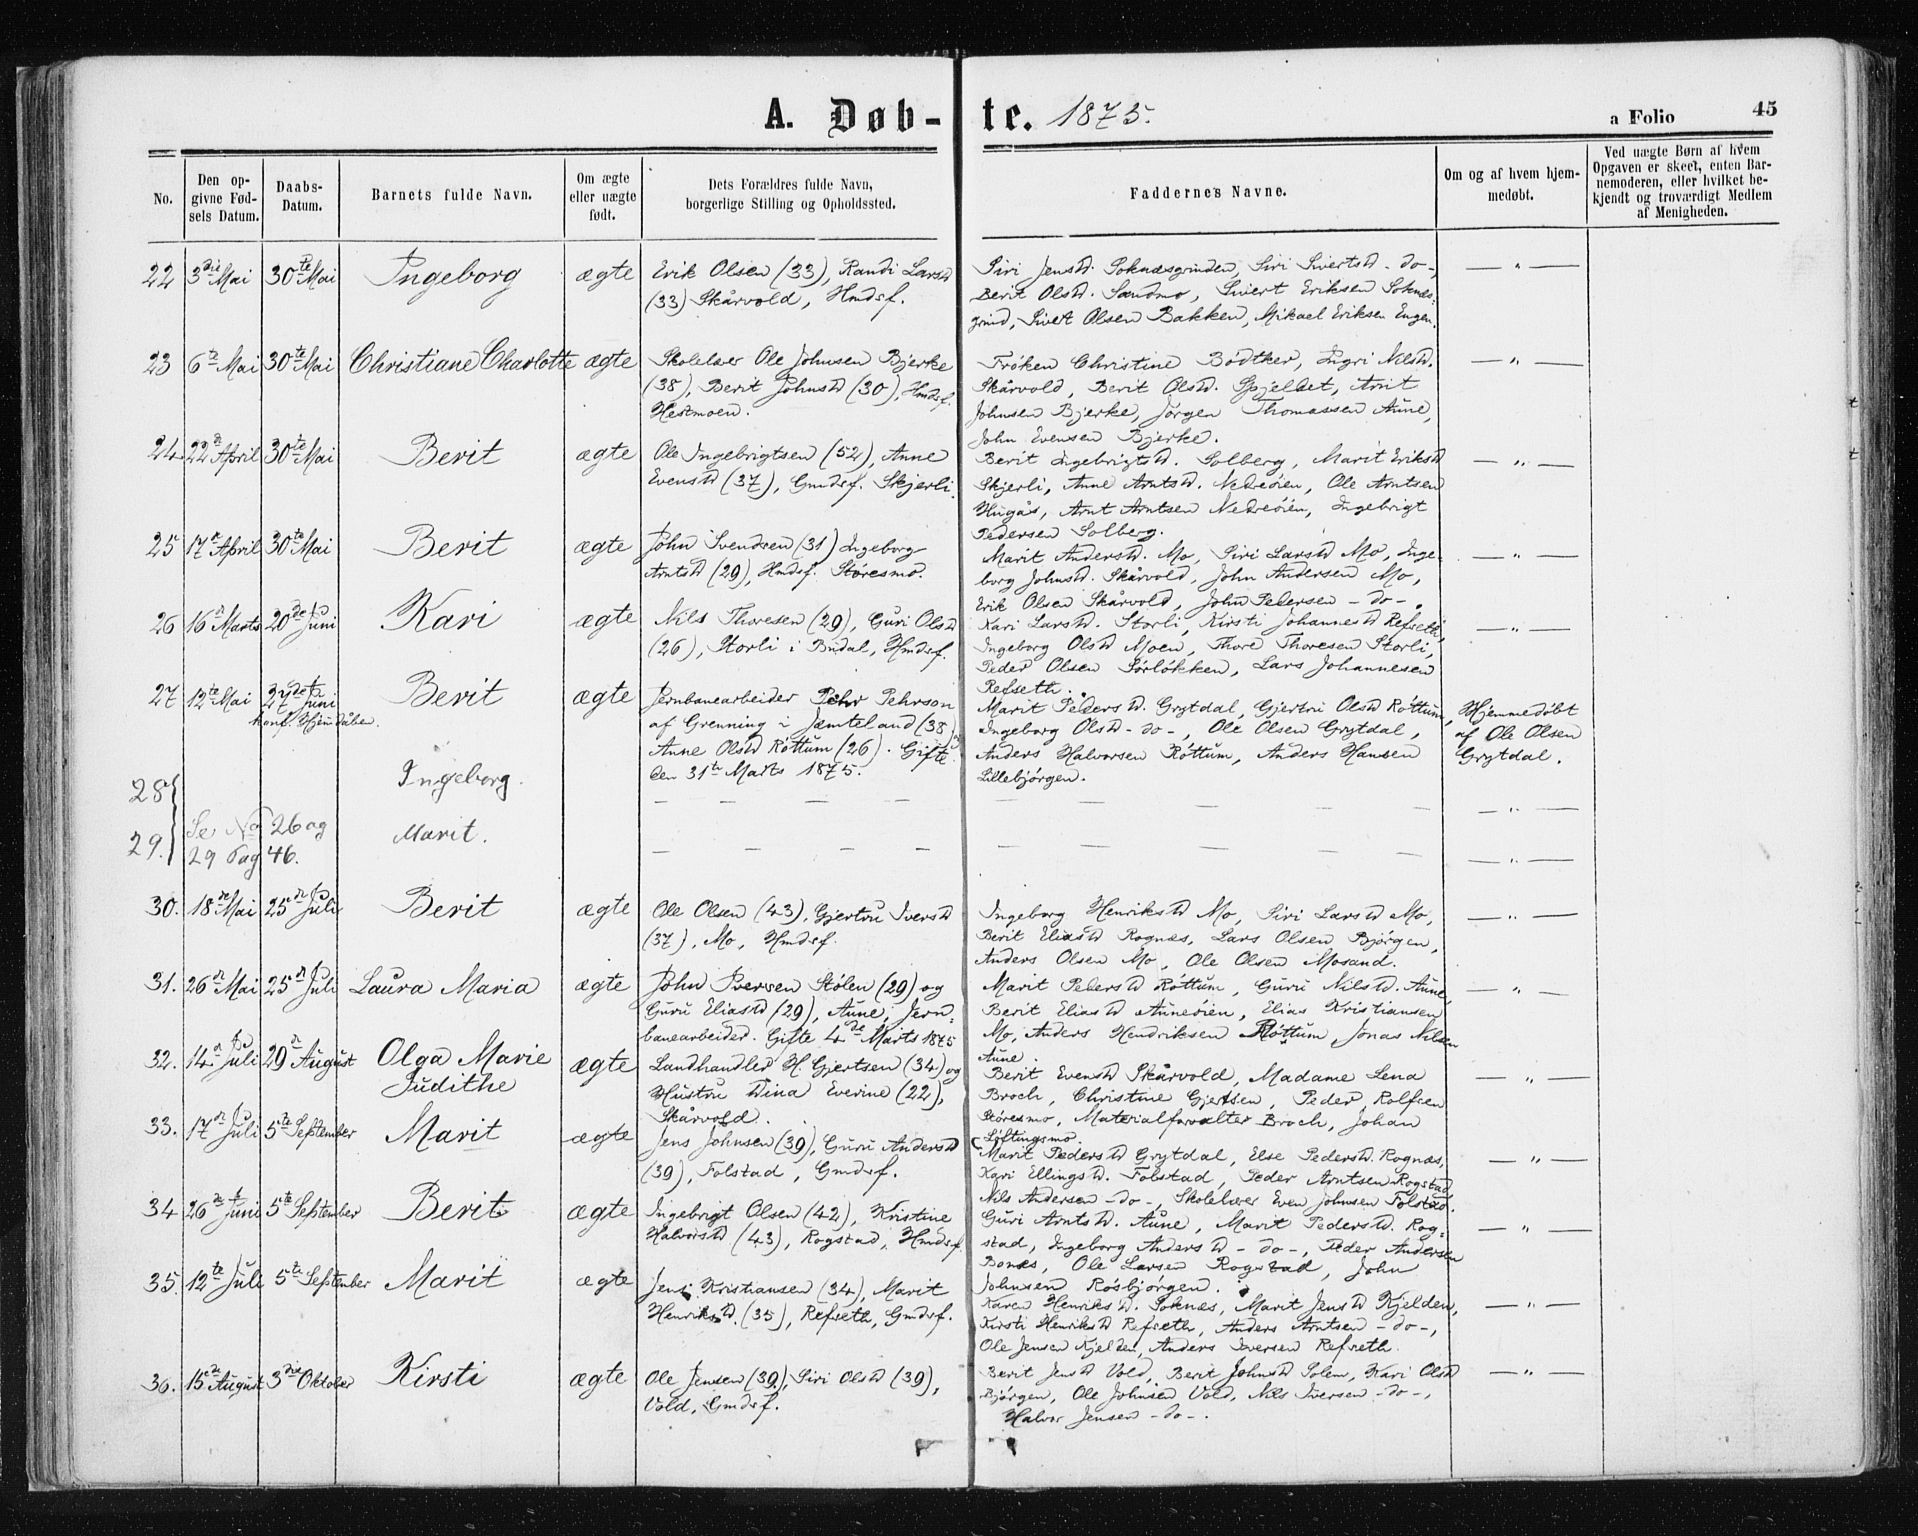 A. Døb-te. 1875.
a Folio 45
No.
Den op-
givne Fød-
sels Datum.
Daabs-
Datum.
Barnets fulde Navn.
Om ægte
eller uægte
født.
Dets Forældres fulde Navn,
borgerlige Stilling og Opholdssted.
Faddernes Navne.
Om og af hvem hjem-
medøbt.
Ved uægte Børn af hvem
Opgaven er skeet, enten Bar-
nemoderen, eller hvilket be-
kjendt og troværdigt Medlem
af Menigheden.
22 3die Mai 30te Mai Ingeborg ægte
Erik Olsen (33), Randi Larsd
(33) Skårvold, Hmdsf.
Siri Jensd. Soknæsgrinden, Siri Sivertsd. -do-
Berit Olsd. Sandmo, Sivert Eriksen Soknæs-
grind, Sivert Olsen Bakken, Mikael Eriksen Engen.
— " —
23 6te Mai 30te Mai Christiane Charlotte ægte
Skolelær Ole Johnsen Bjerke
(38), Berit Johnsd (30), Hmdsf.
Hestmoen.
Frøken Christine Bødtker, Ingri Nilsd.
Skårvold, Berit Olsd. Gjeldet, Arnt
Johnsen Bjerke, Jørgen Thomassen Aune,
John Evensen Bjerke.
— " —
24. 22d April 30te Mai Berit ægte
Ole Ingebrigtsen (52), Anne
Evensd (37), Gmdsf. Skjerli.
Berit Ingebrigtsd. Solberg, Marit Eriksd
Skjerli, Anne Arntsd. Nedreøien, Ole Arntsen
Hugås, Arnt Arntsen Nedreøien, Ingebrigt
Pedersen Solberg.
— " —
25 17de April 30te Mai Berit ægte
John Svendsen (31) Ingeborg
Arntsd (29), Hmdsf. Støresmo.
Marit Andersd. Mo, Siri Larsd Mo, Inge-
borg Johnsd. Skårvold, John Andersen Mo,
Erik Olsen Skårvold, John Pedersen -do-.
— " —
26 16de Marts 20de Juni Kari ægte
Nils Thoresen (29), Guri Olsd
(26), Storli i Budal, Hmdsf.
Kari Larsd. Storli, Kirsti Johannesd Refseth,
Ingeborg Olsd Moen, Thore Thoresen Storli,
Peder Olsen Sørløkken, Lars Johannesen
Refseth.
— " —
27 12te Mai 27de Juni Berit ægte
konf. Hjemdåben.
Jernbanearbeider Pehr Pehrson
af Grenning i Jæmteland (38)
Anne Olsd Røttum (26). Gifte
den 31te Marts 1875.
Marit Pedersd. Grytdal, Gjertru Olsd Røttum,
Ingeborg Olsd -do-, Ole Olsen Grytdal,
Anders Halvorsen Røttum, Anders Hansen
Lillebjørgen.
Hjemmedøbt
af Ole Olsen
Grytdal.
28 Ingeborg.
— — — — — — — — — — — " —
29. Se No 26 og
29 Pag 46.
Marit.
— — — — — — — — — — — " —
30. 18de Mai 25de Juli Berit ægte
Ole Olsen (43), Gjertru Iversd
(37), Mo, Hmdsf.
Ingeborg Henriksd Mo, Siri Larsd Mo,
Berit Eliasd Rognæs, Lars Olsen Bjørgen,
Anders Olsen Mo, Ole Olsen Mosand.
— " —
31. 26de Mai 25de Juli Laura Maria ægte
John Iversen Stølen (29) og
Guru Eliasd (29), Aune, Jern-
banearbeider. Gifte 4de Marts 1875
Marit Pedersd Røttum, Guru Nilsd. Aune,
Berit Eliasd Auneøien, Elias Kristiansen
Mo, Anders Hendriksen Røttum, Jonas Nilsen
Aune.
— " —
32. 14de Juli 29de August Olga Marie
Judithe ægte
Landhandler H. Gjertsen (34) og
Hustru Dina Everine (22),
Skårvold.
Berit Evensd Skårvold, Madame Lena
Broch, Christine Gjertsen, Peder Rolfsen
Støresmo, Materialforvalter Broch, Johan
Løftingsmo.
— " —
33. 17de Juli 5te September Marit ægte
Jens Johnsen (39), Guru Andersd
(39), Folstad, Gmdsf.
Marit Pedersd Grytdal, Else Pedersd. Rognæs,
Kari Ellingsd. Folstad, Peder Arntsen Rogstad
Nils Andersen -do-, Skolelærer Even Johnsen Folstad.
— " —
34 26de Juni 5te September Berit ægte
Ingebrigt Olsen (42), Kristine
Halvorsd (43), Rogstad, Hmdsf.
Guri Arntsd. Aune, Marit Pedersd. Rog-
stad, Ingeborg Andersd -do-, Peder Andersen
Bonæs, Ole Larsen Rogstad, John
Johnsen Røsbjørgen.
— " —
35. 12te Juli 5te September Marit ægte
Jens Kristiansen (34), Marit
Henriksd. (35), Refseth, Gmdsf.
Karen Henriksd. Soknæs, Marit Jensd Kjelden,
Kirsti Henriksd Refseth, Anders Arntsen -do-,
Ole Jensen Kjelden, Anders Iversen Refseth.
— " —
36. 15de August 3die Oktober Kirsti ægte
Ole Jensen (39), Siri Olsd (39),
Vold, Gmdsf.
Berit Jensd Vold, Berit Johnsd Solem, Kari Olsd
Bjørgen, Ole Johnsen Vold, Nils Iversen -do-,
Halvor Jensen -do-.
— " —